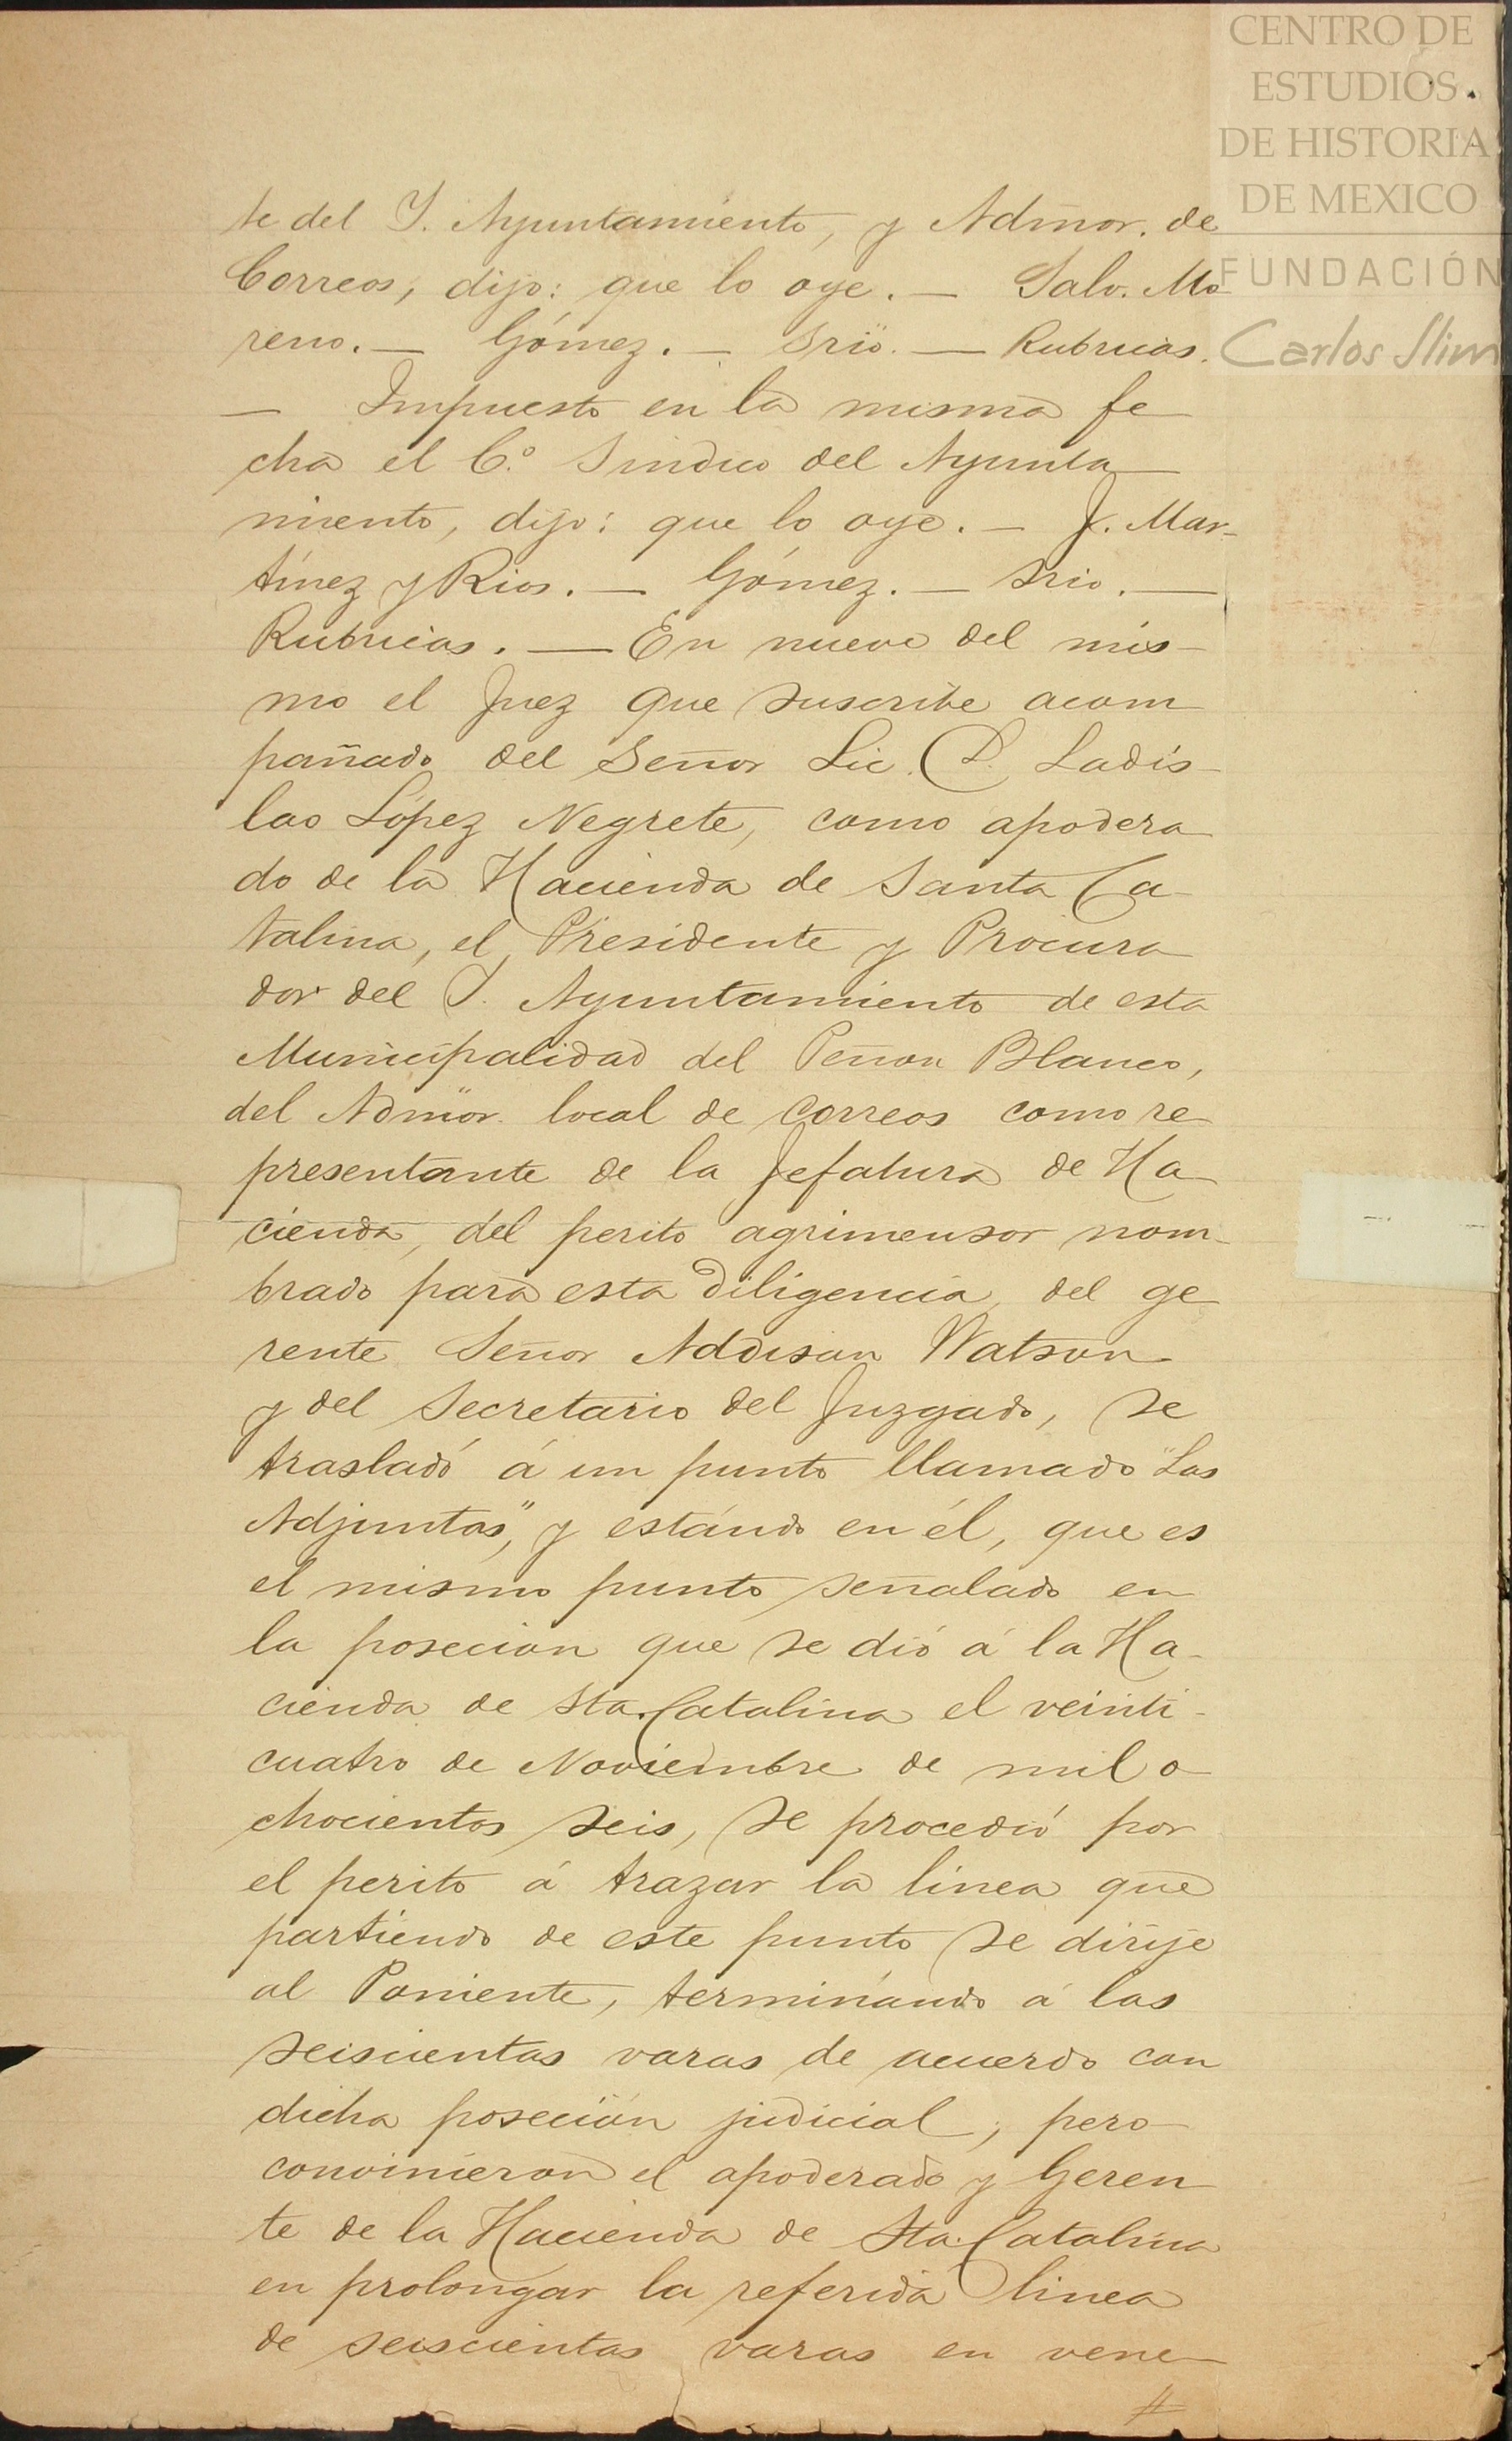 CENTRO DE
ESTUDIOS
DE HISTORIA
DE MEXICO
FUNDACIÓN
Carlos Slim
te del Y. Ayuntamiento, y Admor. de
Correos, dijo: que lo oye. — Salv. Mo
reno. — Gómez. — Srio. — Rubricas.
— Impuesto en la misma fe
cha el C.º Sindico del Ayunta
miento, dijo: que lo oye. — J. Mar-
tínez y Rios. — Gómez. — Srio. —
Rubricas. — En nueve del mis-
mo el Juez que suscribe acom
pañado del Señor Lic. D. Ladis-
lao López Negrete, como apodera
do de la Hacienda de Santa Ca-
talina, el Presidente y Procura
dor del Y. Ayuntamiento de esta
Municipalidad del Peñon Blanco,
del Admor. local de Correos como re
presentante de la Jefatura de Ha
cienda, del perito agrimensor nom-
brado para esta diligencia, del ge
rente Señor Addison Watson
y del Secretario del Juzgado, se
trasladó á un punto llamado "Las
Adjuntas", y estándo en él, que es
el mismo punto señalado en
la posecion que se dió á la Ha-
cienda de Sta. Catalina el veinti-
cuatro de Noviembre de mil o
chocientos seis, se procedió por
el perito á trazar la línea que
partiendo de este punto se dirije
al Poniente, terminándo á las
seiscientas varas de acuerdo con
dicha poseción judicial, pero
convinieron el apoderado y Geren
te de la Hacienda de Sta. Catalina
en prolongar la referida linea
de seiscientas varas en vene
#